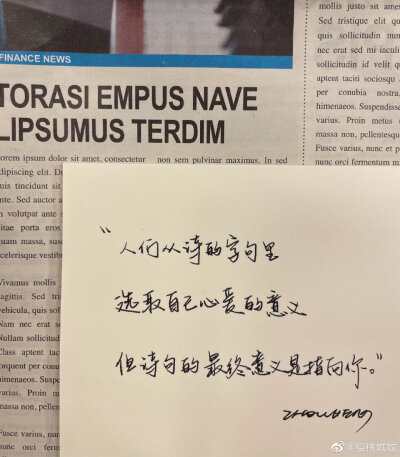 FINANCE NEWS
TORASI EMPUS NAVE
LIPSUMUS TERDIM
Lorem ipsum dolor sit amet, consectetur
adipiscing elit.
quis tincidunt sit
Sed auctor
n volutpat ante
vitae porta eros
quam massa,
scelerisque vestib
Vivamus mollis
sagittis. Sed tri
vehicula, quis sol
Nam nec erat
Nullam sollicitud
Class aptent tac
torquent per conu
himenaeos.
Sed tristique
massa non, pellen
Fusce varius, nun
nunc orci ferment
non sem pulvinar maximus. In sed
mollis justo sit amet
Sed tristique elit qu
quis sollicitudin nun
nec erat sed mi iaculi
sollicitudin id velit q
aptent taciti sociosqu
per conubia nostra,
himenaeos. Suspendisse
varius. Proin metus
massa non, pellentesque
Fusce varius, nunc et p
nunc orci fermentum m
“人们从诗的字句里
选取自己心爱的意义
但诗句的最终意义是指向你。”
ZHOUHENG
@樱桃城城